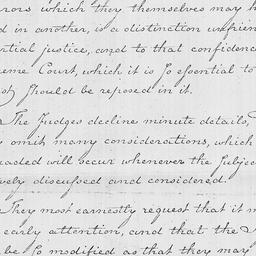 rors which they themselves may h
d in another, is a distinction unfrien
rtial justice, and to that confidenc
eme Court, which it is so essential to
ot should be reposed in it.
The Judges decline minute details,
y omit many considerations, which
uaded will occur whenever the subjec
vely discussed and considered.
They most earnestly request that it m
early attention, and that the
be so modified as that they may